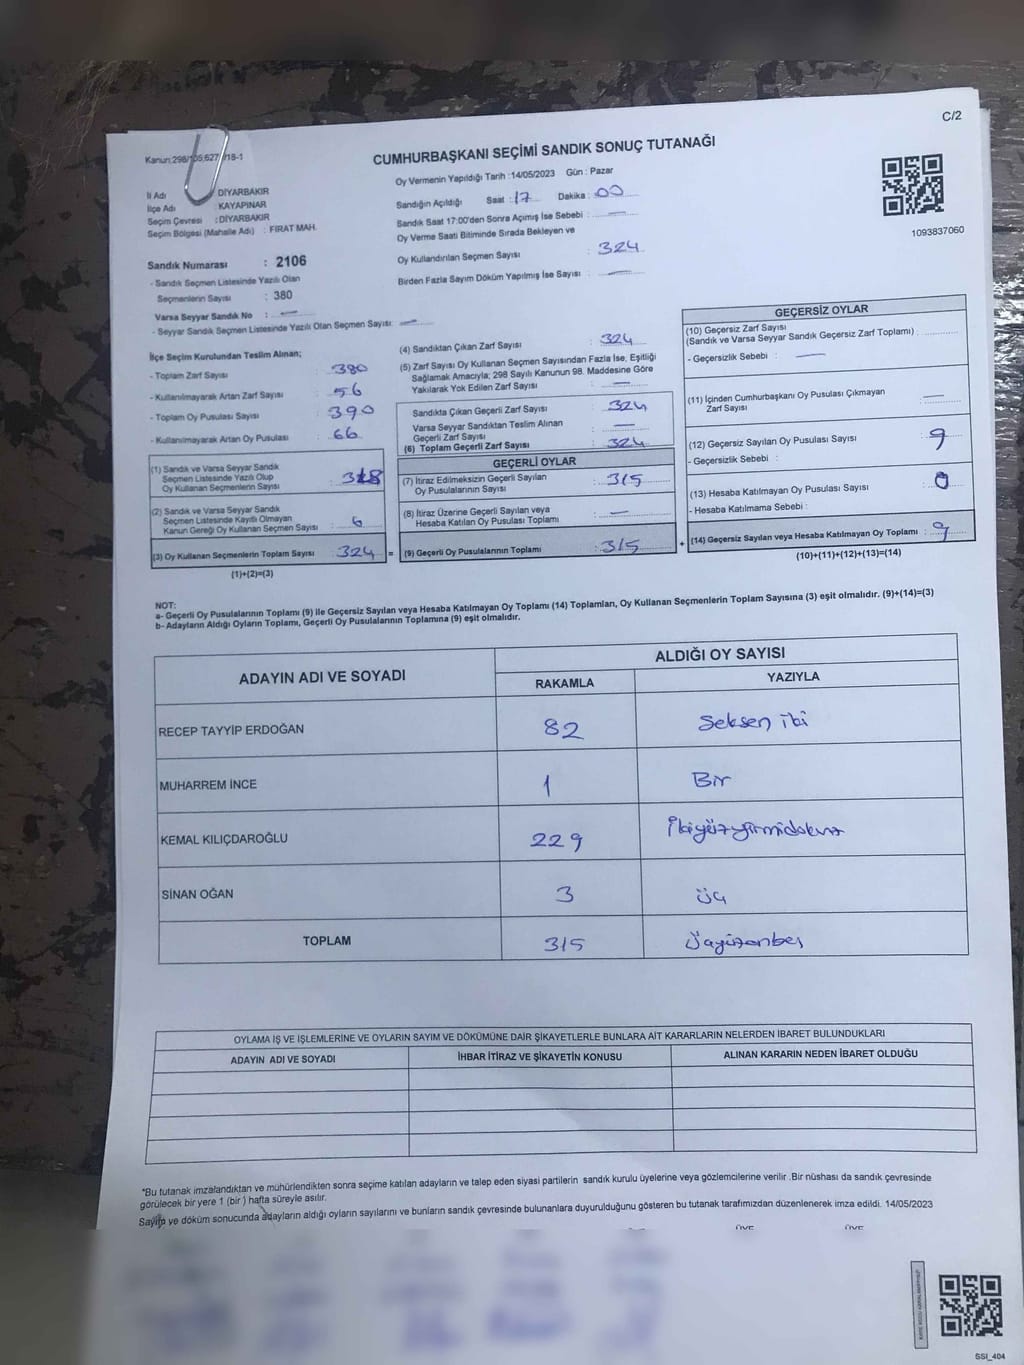 C/2
Kanun:298/105,627 /18-1
CUMHURBAŞKANI SEÇİMİ SANDIK SONUÇ TUTANAĞI
Oy Vermenin Yapıldığı Tarih :14/05/2023 Gün : Pazar
İl Adı : DİYARBAKIR
İlçe Adı : KAYAPINAR
Seçim Çevresi : DİYARBAKIR
Seçim Bölgesi (Mahalle Adı) : FIRAT MAH.
Sandığın Açıldığı Saat : 17 Dakika : 00
Sandık Saat 17:00'den Sonra Açımış İse Sebebi : —
Oy Verme Saati Bitiminde Sırada Bekleyen ve
Oy Kullandırılan Seçmen Sayısı : 324
Birden Fazla Sayım Döküm Yapılmış İse Sayısı : —
1093837060
Sandık Numarası : 2106
- Sandık Seçmen Listesinde Yazılı Olan
Seçmenlerin Sayısı : 380
Varsa Seyyar Sandık No : —
- Seyyar Sandık Seçmen Listesinde Yazılı Olan Seçmen Sayısı: —
İlçe Seçim Kurulundan Teslim Alınan;
- Toplam Zarf Sayısı : 380
- Kullanılmayarak Artan Zarf Sayısı : 56
- Toplam Oy Pusulası Sayısı : 390
- Kullanılmayarak Artan Oy Pusulası : 66
(1) Sandık ve Varsa Seyyar Sandık
Seçmen Listesinde Yazılı Olup
Oy Kullanan Seçmenlerin Sayısı : 318
(2) Sandık ve Varsa Seyyar Sandık
Seçmen Listesinde Kayıtlı Olmayan
Kanun Gereği Oy Kullanan Seçmen Sayısı : 6
(3) Oy Kullanan Seçmenlerin Toplam Sayısı : 324 =
(1)+(2)=(3)
(4) Sandıktan Çıkan Zarf Sayısı : 324
(5) Zarf Sayısı Oy Kullanan Seçmen Sayısından Fazla İse, Eşitliği
Sağlamak Amacıyla; 298 Sayılı Kanunun 98. Maddesine Göre
Yakılarak Yok Edilen Zarf Sayısı : —
Sandıkta Çıkan Geçerli Zarf Sayısı : 324
Varsa Seyyar Sandıktan Teslim Alınan
Geçerli Zarf Sayısı : —
(6) Toplam Geçerli Zarf Sayısı : 324
GEÇERLİ OYLAR
(7) İtiraz Edilmeksizin Geçerli Sayılan
Oy Pusulalarının Sayısı : 315
(8) İtiraz Üzerine Geçerli Sayılan veya
Hesaba Katılan Oy Pusulası Toplamı : —
(9) Geçerli Oy Pusulalarının Toplamı : 315 +
GEÇERSİZ OYLAR
(10) Geçersiz Zarf Sayısı
(Sandık ve Varsa Seyyar Sandık Geçersiz Zarf Toplamı) :
- Geçersizlik Sebebi : —
(11) İçinden Cumhurbaşkanı Oy Pusulası Çıkmayan
Zarf Sayısı : —
(12) Geçersiz Sayılan Oy Pusulası Sayısı : 9
- Geçersizlik Sebebi :
(13) Hesaba Katılmayan Oy Pusulası Sayısı : 0
- Hesaba Katılmama Sebebi :
(14) Geçersiz Sayılan veya Hesaba Katılmayan Oy Toplamı : 9
(10)+(11)+(12)+(13)=(14)
NOT:
a- Geçerli Oy Pusulalarının Toplamı (9) ile Geçersiz Sayılan veya Hesaba Katılmayan Oy Toplamı (14) Toplamları, Oy Kullanan Seçmenlerin Toplam Sayısına (3) eşit olmalıdır. (9)+(14)=(3)
b- Adayların Aldığı Oyların Toplamı, Geçerli Oy Pusulalarının Toplamına (9) eşit olmalıdır.
ADAYIN ADI VE SOYADI ALDIĞI OY SAYISI
RAKAMLA YAZIYLA
RECEP TAYYİP ERDOĞAN 82 Seksen iki
MUHARREM İNCE 1 Bir
KEMAL KILIÇDAROĞLU 229 İkiyüzyirmidokuz
SİNAN OĞAN 3 üç
TOPLAM 315 Üçyüzonbeş
OYLAMA İŞ VE İŞLEMLERİNE VE OYLARIN SAYIM VE DÖKÜMÜNE DAİR ŞİKAYETLERLE BUNLARA AİT KARARLARIN NELERDEN İBARET BULUNDUKLARI
ADAYIN ADI VE SOYADI İHBAR İTİRAZ VE ŞİKAYETİN KONUSU ALINAN KARARIN NEDEN İBARET OLDUĞU
*Bu tutanak imzalandıktan ve mühürlendikten sonra seçime katılan adayların ve talep eden siyasi partilerin sandık kurulu üyelerine veya gözlemcilerine verilir .Bir nüshası da sandık çevresinde
görülecek bir yere 1 (bir ) hafta süreyle asılır.
Sayım ve döküm sonucunda adayların aldığı oyların sayılarını ve bunların sandık çevresinde bulunanlara duyurulduğunu gösteren bu tutanak tarafımızdan düzenlenerek imza edildi. 14/05/2023
ÜYE ÜYE
SSI_404